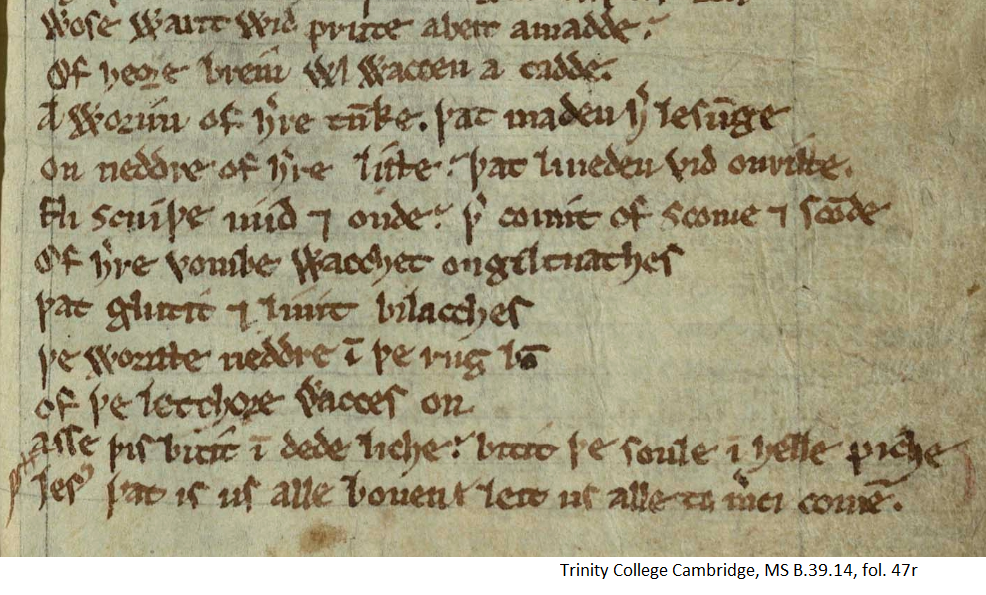 wose wartt wid prute abett amadde.
Of heore brein wl waccen a tadde.
A worim of hire tunke. þat maden hi lesunge
on neddre of hire lifte. þat liueden vid onritte.
En scuiþe niid ⁊ onde. þer comit of scome ⁊ scōde
Of hire vombe wacchet ongeltuatches
þat glutit ⁊ liuit bilacches
þe woratte neddre ī þe rug bō
of þe letchore wacces on
asse þis bitit ī dede liche. bitit þe soule ī helle piche
Ies' þat is us alle bouen lett us alle to m'ci comē.
Trinity College Cambridge, MS B.39.14, fol. 47r